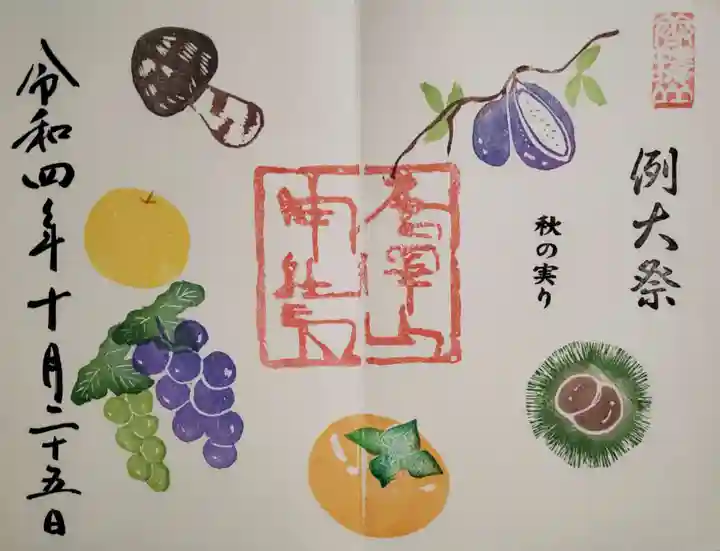 例大祭
秋の実り
令和四年十月二十五日